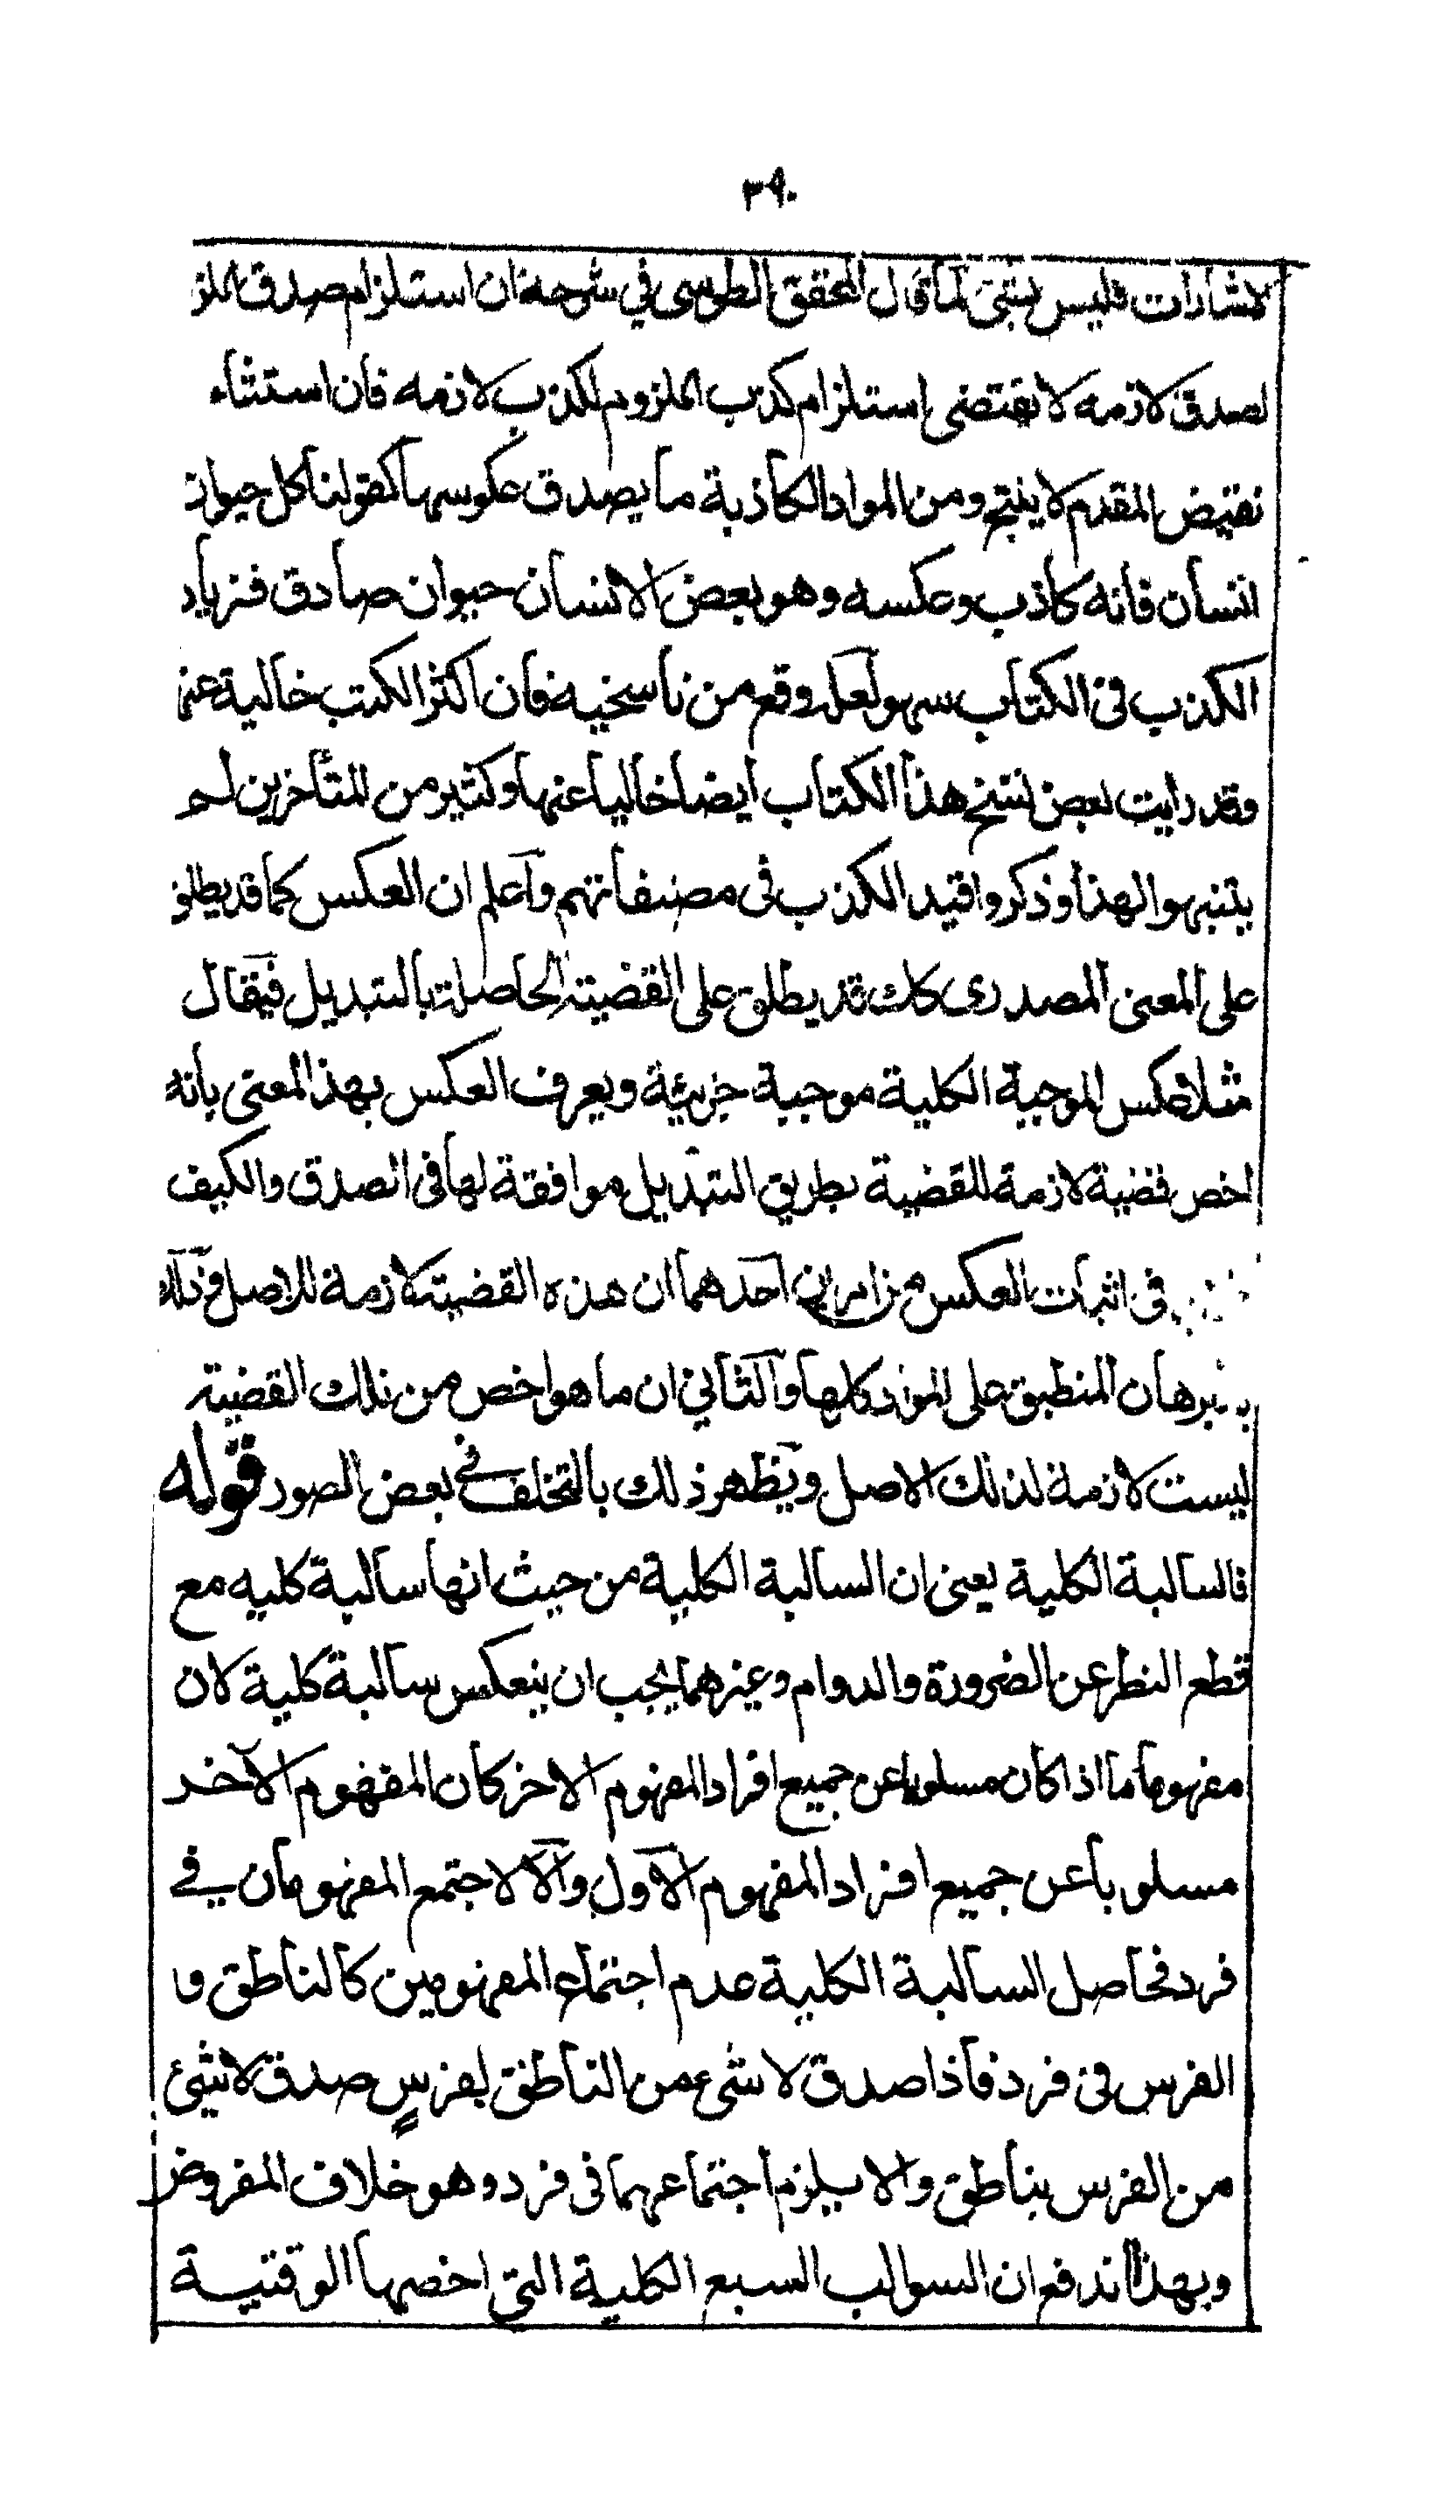 ٢٩٠
الاشارات فليس بشئ لما قال المحقق الطوسى في شرحه ان استلزام صدق الملزوم
لصدق لازمه لا يقتضى استلزام كذب الملزوم لكذب لازمه فان استثناء
نقيض المقدم لا ينتج ومن المواد الكاذبة ما يصدق عكوسها كقولنا كل حيوان
انسان فانه كاذب وعكسه وهو بعض الانسان حيوان صادق فزياد
الكذب في الكتاب سهو لعله وقع من ناسخيه فان اكثر الكتب خالية عنها
وقد رايت بعض نسخ هذا الكتاب ايضا خاليا عنها وكثير من المتأخرين لم
يتنبهوا لهذا وذكروا قيد الكذب فى مصنفاتهم واعلم ان العكس كما قد يطلق
على المعنى المصدرى كك قد يطلق على القضيته الحاصلة بالتبديل فيقال
مثلا عكس الموجبة الكلية موجبة جزئية ويعرف العكس بهذ المعنى بانه
اخص قضية لازمة للقضية بطريق التبديل موافقة لها فى الصدق والكيف
فى اثبات العكس من امرين احدهما ان هذه القضيته لازمة للاصل وذلك
برهان المنطبق على المواد كلها والثاني ان ما هو اخص من تلك القضيته
ليست لازمة لذلك الاصل ويظهر ذلك بالتخلف في بعض الصور قوله
فالسالبة الكلية يعنى ان السالبة الكلية من حيث انها سالبة كليه مع
قطع النظر عن الضرورة والدوام وغيرهما يجب ان ينعكس سالبة كلية لان
مفهوما ما اذا كان مسلوبا عن جميع افراد المفهوم الاخر كان المفهوم الآخر
مسلوبا عن جميع افراد المفهوم الاول والا لاجتمع المفهومان في
فرد فحاصل السالبة الكلية عدم اجتماع المفهومين كالناطق و
الفرس فى فرد فاذا صدق لا شىء من الناطق بفرسٍ صدق لا شئ
من الفرس بناطق والا يلزم اجتماعهما فى فرد وهو خلاف المفروض
وبهذا اندفع ان السوالب السبع الكلية التى اخصها الوقتية